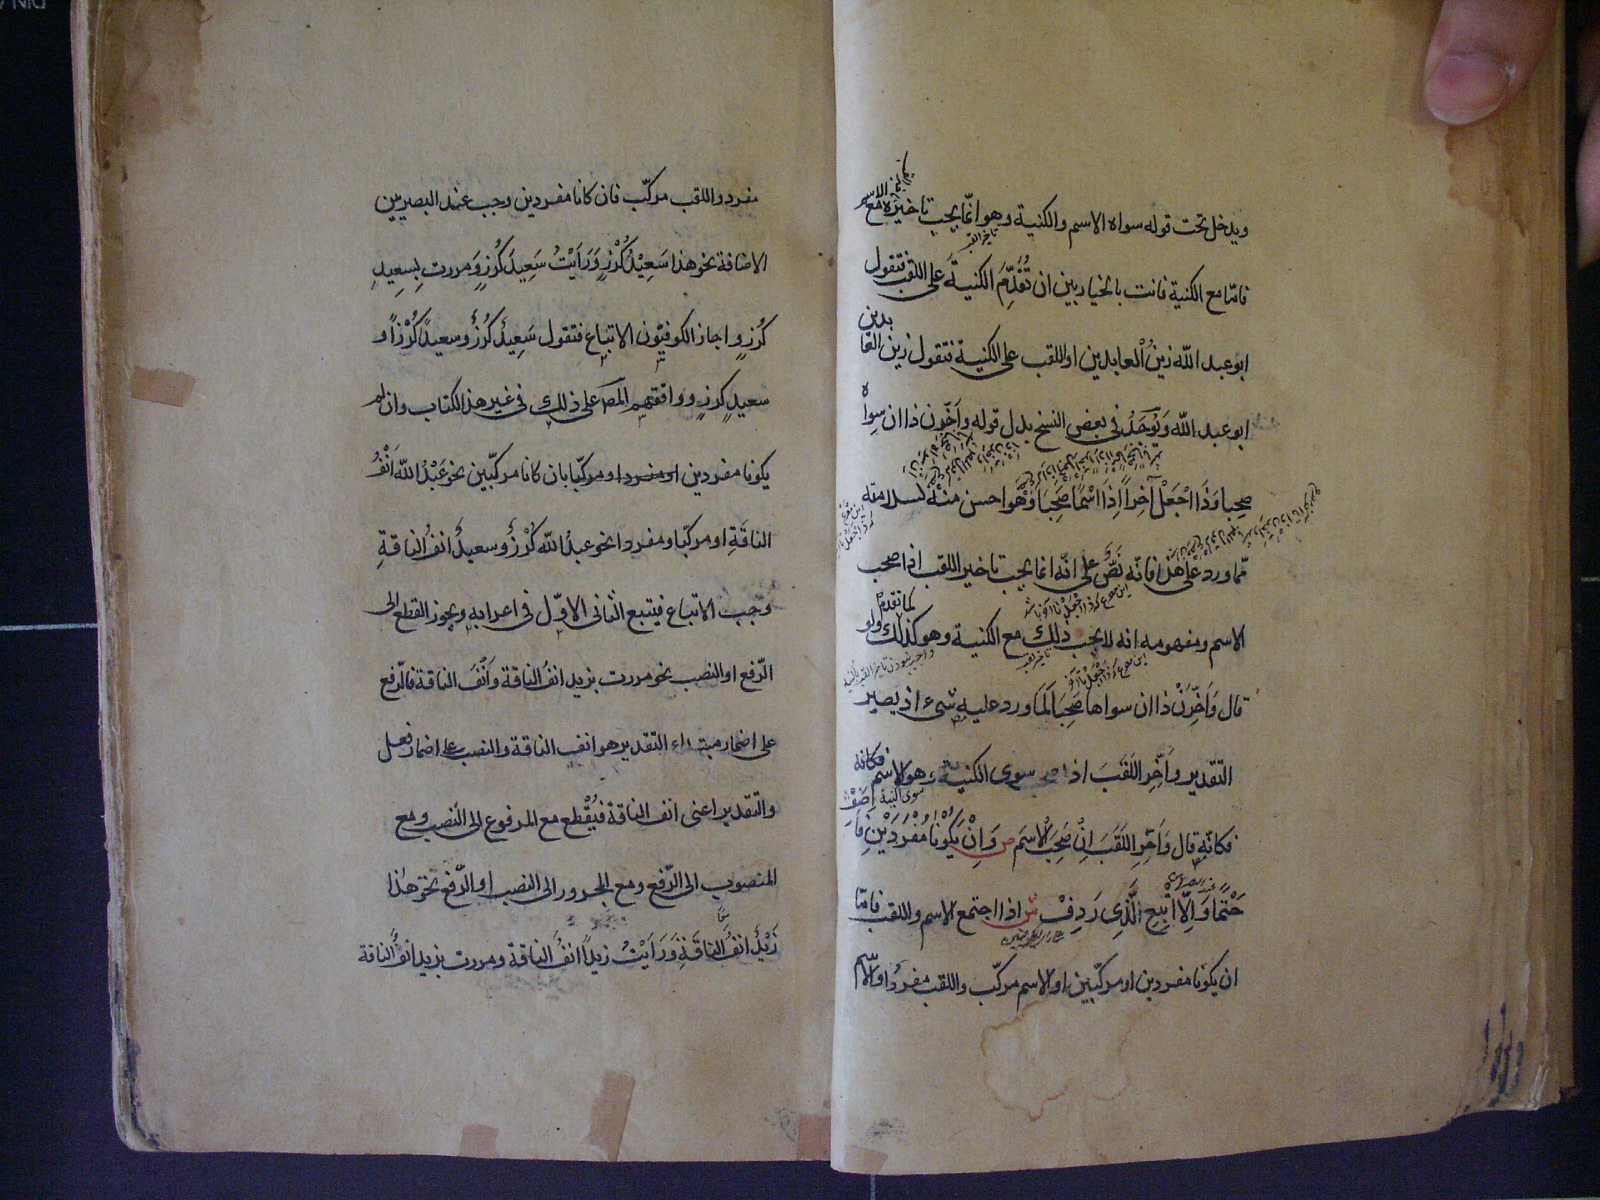 ويدخل تحت قوله سواه الاسم والكنية وهو انّما يجب تاخيره مع الاسم
فامّا مع الكنية فانت بالخيار بين ان تُقَدِّمَ الكنيةَ على اللقب فتقول
ابو عبد اللّه زينُ الْعابدين او اللقب على الكنية فتقول زين العابدين
ابو عبد اللّه وَيُوْجَدُ فى بعض النسخ بدل قوله وأَخّرن ذا ان سواه
صحبا وَذَا اجْعَلْ آخِراً اِذَا اسْمًا صَحِبَا وَهُوَ احسن منه لسلامته
ممّا ورد على هذا فانّه نَصٌّ على انّه انما يجب تاخير اللقب اذا صحب
الاسم ومفهومه انه لا يجب ذلك مع الكنية وهو كذلك كما تقدم ولو
قال وَاَخِّرَنْ ذا ان سواها صَحِبَا لَمَا ورد عليه شىء اذ يصير
التقدير وأَخِّرِ اللَّقَبَ اذا صحب سوى الكنية وهو الاسم
فكانّه قال وَاَخِّرِ اللَّقَبَ اِنْ صَحِبَ الاِسْمَ ص وَاِنْ يَكُوْنَا مُفْرَدَيْنِ فَاَضِفْ
حَتْمًا وَاِلّا اَتْبِعِ الَّذِى رَدِفْ ش اذا اجتمع الاسم واللقب فامّا
ان يكونا مفردين او مركّبين او الاسم مركّب واللقب مفردُ او الاسم
مفرد واللقب مركّب فان كانا مفردين وجب عند البصريين
الاضافة نحو هذا سَعِيْدُ كُرْزٍ وَرَاَيْتُ سَعِيدَ كُرْزٍ وَمررت بِسعيدِ
كُرْزٍ واجاز الكوفيّون الاتباع فتقول سَعِيدٌ كُرْزٌ وسعيدًا كُرْزاً و
سعيدٍ كرزٍ ووافقهم المص على ذلك فى غير هذا الكتاب وان لم
يكونا مفردين او مفردا او مركّبا بان كانا مركّبين نحو عَبْدُ اللّه اَنْفُ
الناقَةِ او مركبا ومفردا نحو عبدُ اللّه كُرْزٌ وسعيدٌ انفُ الناقةِ
وجب الاتباع فيتبع الثانى الاوّل فى اعرابه ويجوز القطع الى
الرّفع او النصب نحو مررت بزيد انفُ الناقة وَاَنْفَ الناقة فالرّفع
على اضمار مبتداء التقدير هو انف الناقة والنصب على اضمار فعل
والتقدير اعنى انف الناقة فيُقْطع مع المرفوع الى النصب ومع
المنصوب الى الرّفع ومع المجرور الى النصب او الرّفع نحو هذا
زَيْدٌ انفَ الناقَةِ وَرَاَيْتُ زيداً انفُ الناقة ومررت بزيد انفُ الناقة